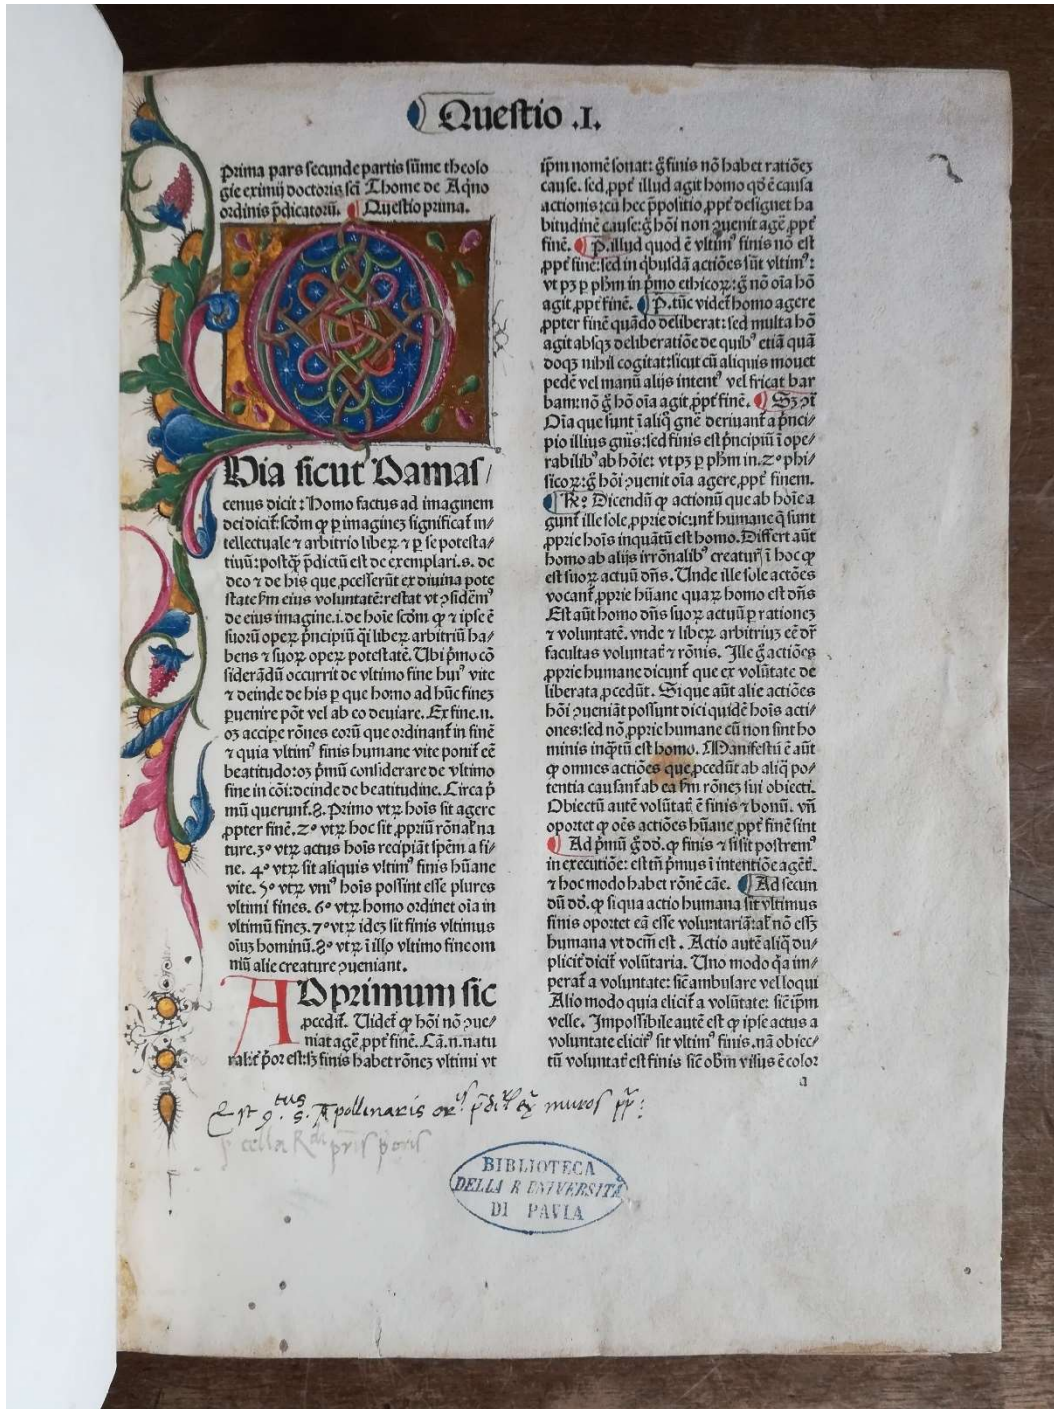 Questio .I.
Prima pars secunde partis sūme theolo
gie eximij doctoris sc̄i Thome de Aq̄no
ordinis p̄dicatorū. Questio prima.
Oia sicut Damas/
cenus dicit: Homo factus ad imaginem
dei dicit̄: scōm ꝙ ꝑ imaginez significat̄ in/
tellectuale ⁊ arbitrio liberꝝ ⁊ ꝑ se potesta/
tiuū: postꝙ̄ p̄dictū est de exemplari .s. de
deo ⁊ de his que ꝓcesserūt ex diuina pote
state ẜm eius voluntatē: restat vt ↄsidemꝰ
de eius imagine .i. de hoīe scōm ꝙ ⁊ ipse ē
suorū operꝝ p̄ncipiū q̄i liberꝝ arbitriū ha/
bens ⁊ suorꝝ operꝝ potestatē. Ubi p̄mo cō
siderādū occurrit de vltimo fine huiꝰ vite
⁊ deinde de his ꝑ que homo ad hūc finez
ꝑuenire pōt vel ab eo deuiare. Ex fine .n.
oꝫ accipe rōnes eorū que ordinant̄ in finē
⁊ quia vltimꝰ finis humane vite ponit̄ eē
beatitudo: oꝫ p̄mū considerare de vltimo
fine in cōi: deinde de beatitudine. Circa p̄
mū querunt̄ .8. Primo vtꝝ hoīs sit agere
ꝓpter finē. 2º vtꝝ hoc sit ꝓpriū rōnal̄ na
ture. 3º vtꝝ actus hoīs recipiāt spēm a fi/
ne. 4º vtꝝ sit aliquis vltimꝰ finis hūane
vite. 5º vtꝝ vniꝰ hoīs possint esse plures
vltimi fines. 6º vtꝝ homo ordinet oīa in
vltimū finez. 7º vtꝝ idez sit finis vltimus
oīuz hominū. 8º vtꝝ ī illo vltimo fine om
niū alie creature ↄueniant.
AD primum sic
ꝓcedit̄. Uidet̄ ꝙ hōi nō ↄue/
niat agē ꝓpt̄ finē. Cā .n. natu
ral̄r p̄or est: sꝫ finis habet rōnez vltimi vt
ip̄m nomē sonat: g̊ finis nō habet ratiōez
cause. sed ꝓpt̄ illud agit homo qd̄ ē causa
actionis: cū hec p̄positio ꝓpt̄ designet ha
bitudinē cause: g̊ hōi non ↄuenit agē ꝓpt̄
finē. P. illud quod ē vltimꝰ finis nō est
ꝓpt̄ finē: sed in q̄busdā actiōes sūt vltimꝰ:
vt pꝫ ꝑ ph̄m in p̄mo ethicorꝝ: g̊ nō oīa hō
agit ꝓpt̄ finē. P. tūc videt̄ homo agere
ꝓpter finē quādo deliberat: sed multa hō
agit absqꝫ deliberatiōe de quibꝰ etiā quā
doqꝫ nihil cogitat: sicut cū aliquis mouet
pedē vel manū alijs intentꝰ vel fricat bar
bam: nō g̊ hō oīa agit ꝓpt̄ finē. Sꝫ ↄ̄
Oīa que sunt ī aliq̊ gn̄e deriuant̄ a p̄nci/
pio illius gn̄is: sed finis est p̄ncipiū ī ope/
rabilibꝰ ab hoīe: vt pꝫ ꝑ ph̄m in .2º phi/
sicorꝝ: g̊ hōi ↄuenit oīa agere ꝓpt̄ finem.
Rº Dicendū ꝙ actionū que ab hoīe a
gunt̄ ille sole ꝓprie dicunt̄ humane q̄ sunt
ꝓprie hoīs inquātū est homo. Differt aūt
homo ab alijs irrōnalibꝰ creatur̄ ī hoc ꝙ
est suorꝝ actuū dn̄s. Unde ille sole actōes
vocant̄ ꝓprie hūane quarꝝ homo est dn̄s
Est aūt homo dn̄s suorꝝ actuū ꝑ rationez
⁊ voluntatē. vnde ⁊ liberꝝ arbitriuz eē dr̄
facultas voluntat̄ ⁊ rōnis. Ille g̊ actiōes
ꝓprie humane dicunt̄ que ex volūtate de
liberata ꝓcedūt. Si que aūt alie actiōes
hōi ↄueniāt possunt dici quidē hoīs acti/
ones: sed nō ꝓprie humane cū non sint ho
minis inq̄tū est homo. Manifestū ē aūt
ꝙ omnes actiōes que ꝓcedūt ab aliq̄ po/
tentia causant̄ ab ea ẜm rōnez sui obiecti.
Obiectū autē volūtat̄ ē finis ⁊ bonū. vn̄
oportet ꝙ oēs actiōes hūane ꝓpt̄ finē sint
Ad p̄mū g̊ dd̄. ꝙ finis ⁊ si sit postremꝰ
in executiōe: est tn̄ p̄mus ī intentiōe agēt̄.
⁊ hoc modo habet rōnē cāe. Ad secun
dū dd̄. ꝙ si qua actio humana sit vltimus
finis oportet eā esse voluntariā: al̄ nō essꝫ
humana vt dcm̄ est. Actio autē aliq̄ du/
plicit̄ dicit̄ volūtaria. Uno modo q̄a im/
perat̄ a voluntate: sic̄ ambulare vel loqui
Alio modo quia elicit̄ a volūtate: sic̄ ip̄m
velle. Impossibile autē est ꝙ ipse actus a
voluntate elicitꝰ sit vltimꝰ finis. nā obiec/
tū voluntat̄ est finis sic̄ obm̄ visus ē color
a
Est 9.tus S. Apollinaris
muros
cella
BIBLIOTECA
DELLA R UNIVERSITÀ
DI PAVIA